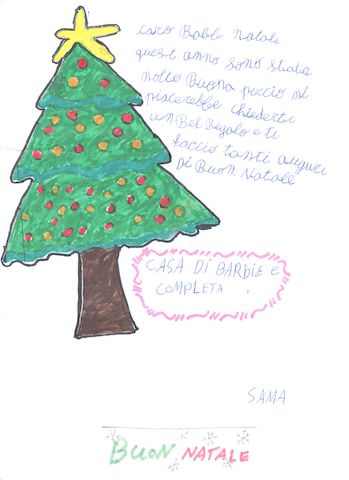 caro Babb natale
quest anno sono stata
molto Buona perciò mi
piacerebbe chiederti
un Bel Regalo e ti
faccio tanti auguri
di Buon Natale
CASA DI BARBIE e
COMPLETA
SAMA
BUON NATALE